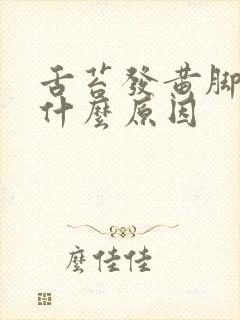 舌苔發黃腳
什麼原因
麼佳佳